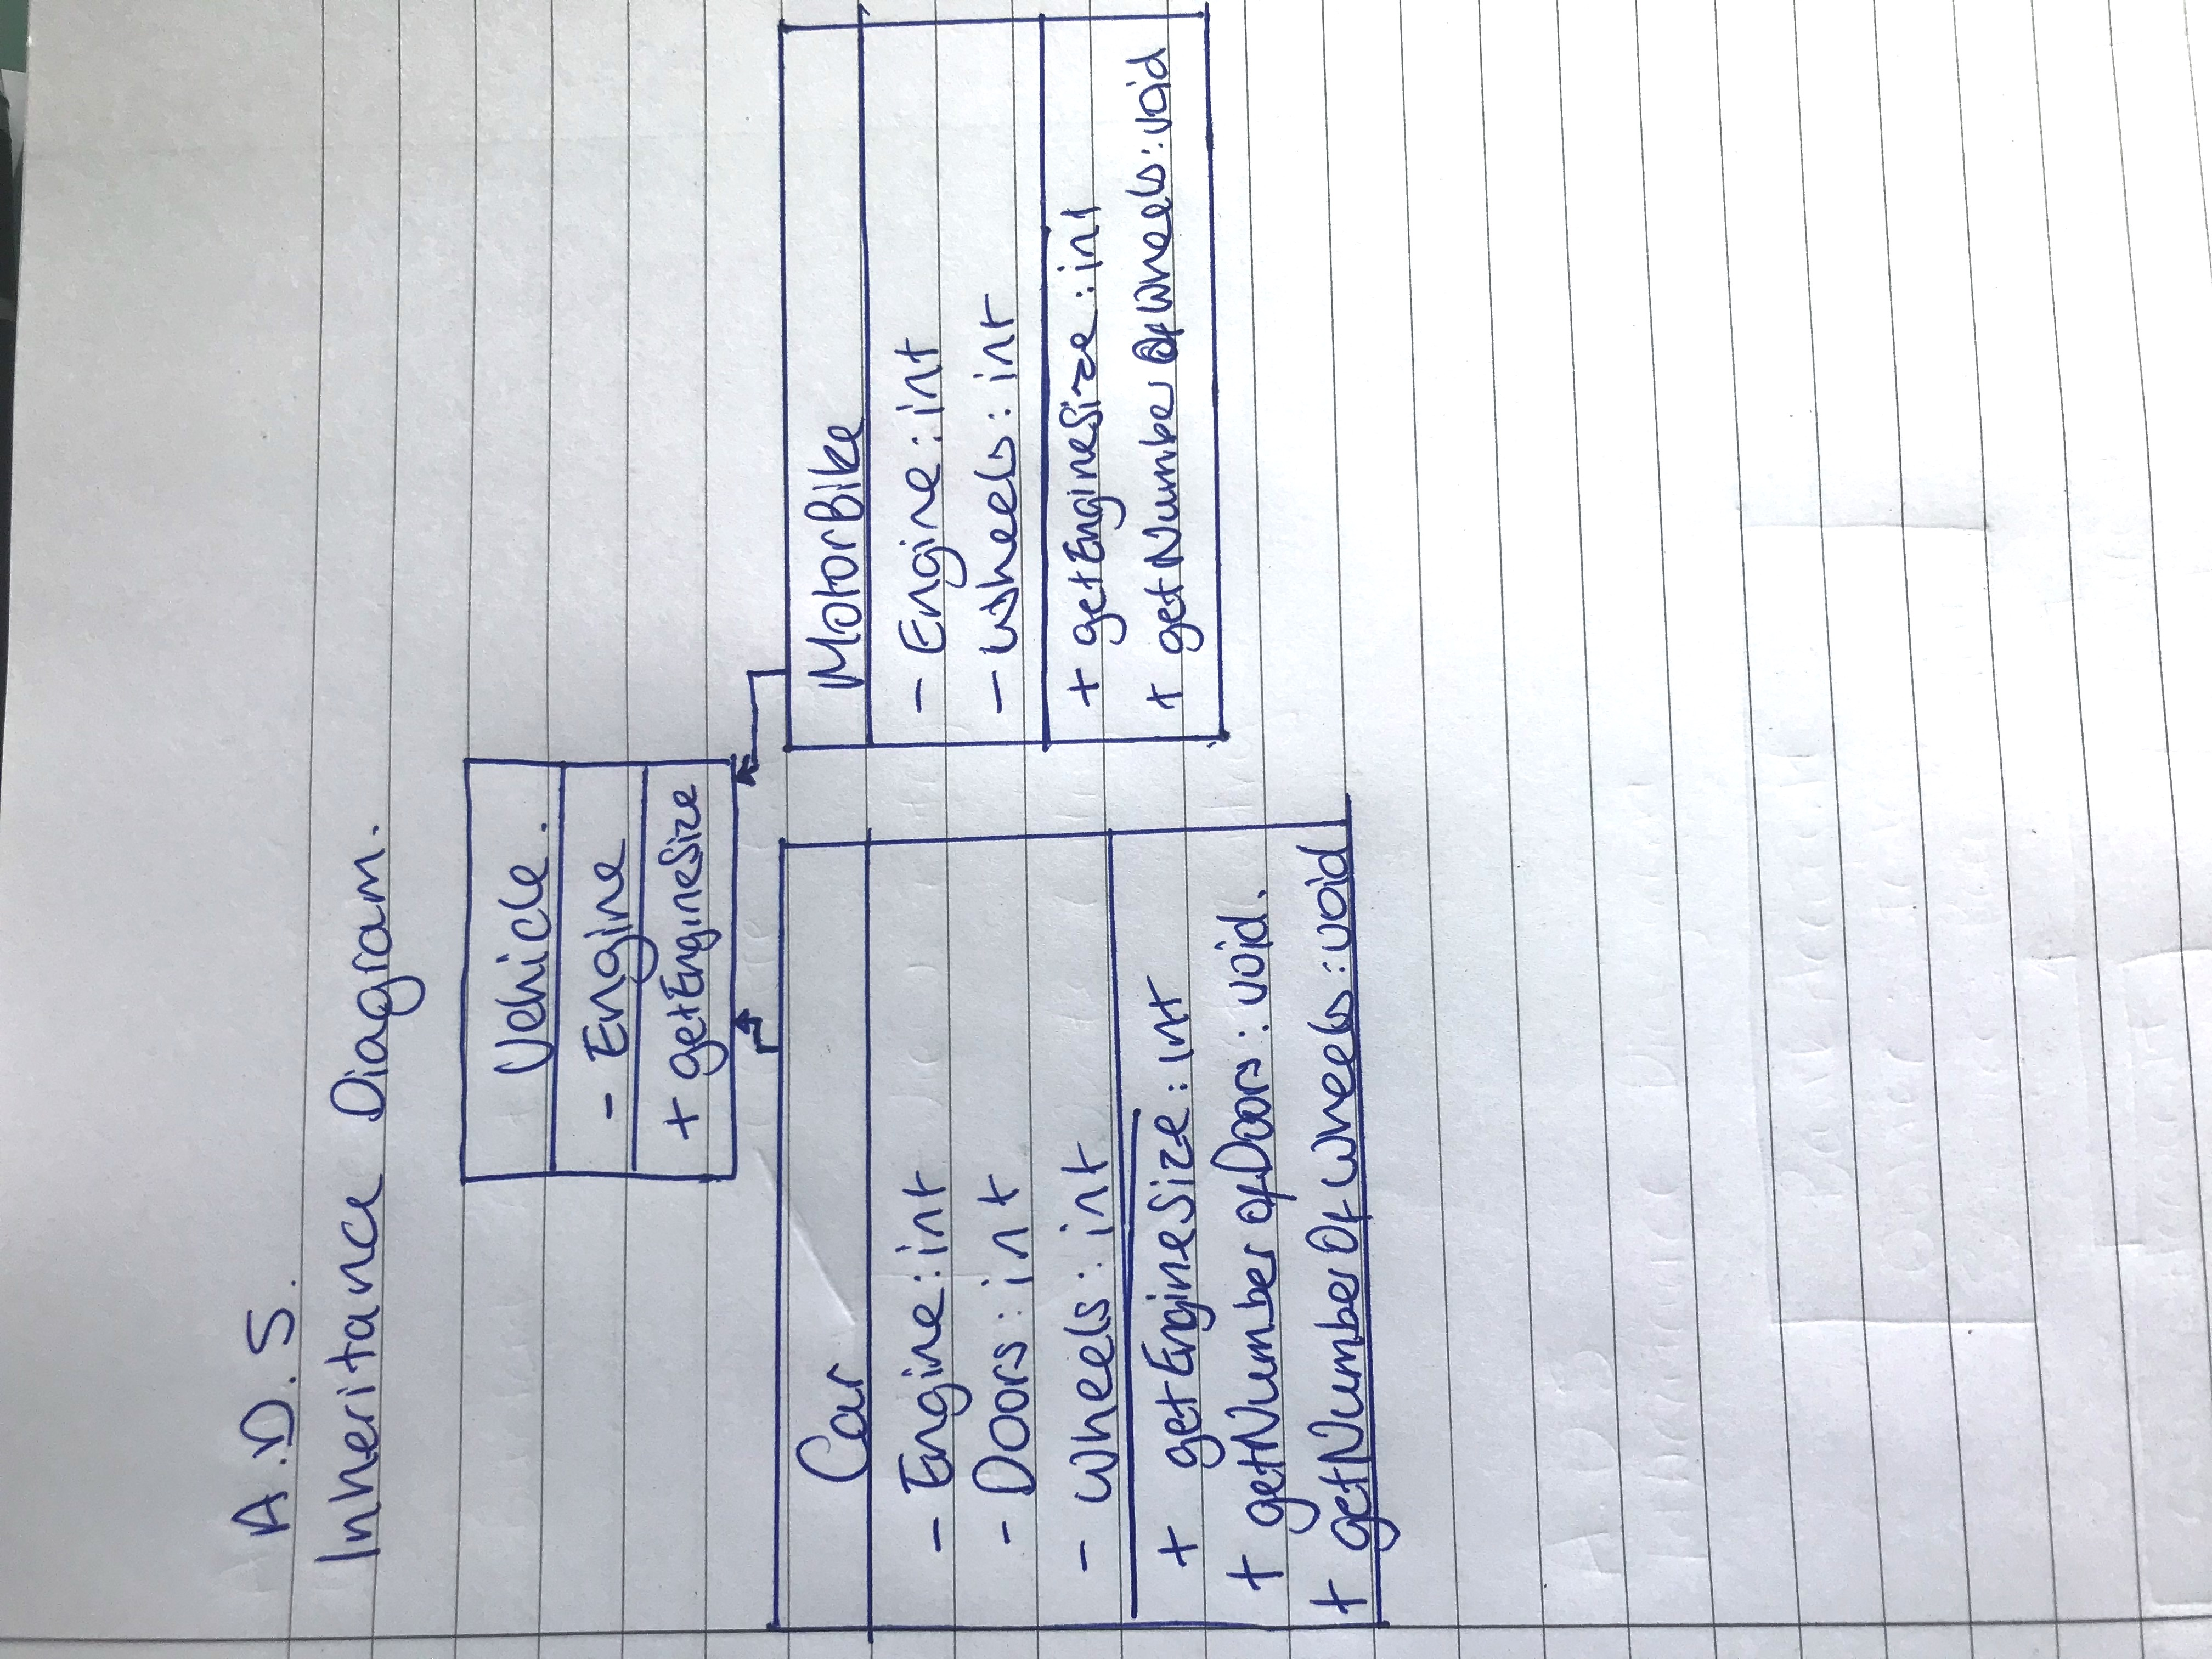 A.D.S.
Inheritance Diagram.
Vehicle.
- Engine
+ getEngineSize
Car
- Engine: int
- Doors: int
- Wheels: int
+ getEngineSize: int
+ getNumberOfDoors: void.
+ getNumberOfWheels: void
MotorBike
- Engine: int
- Wheels: int
+ getEngineSize: int
+ getNumberOfWheels: void